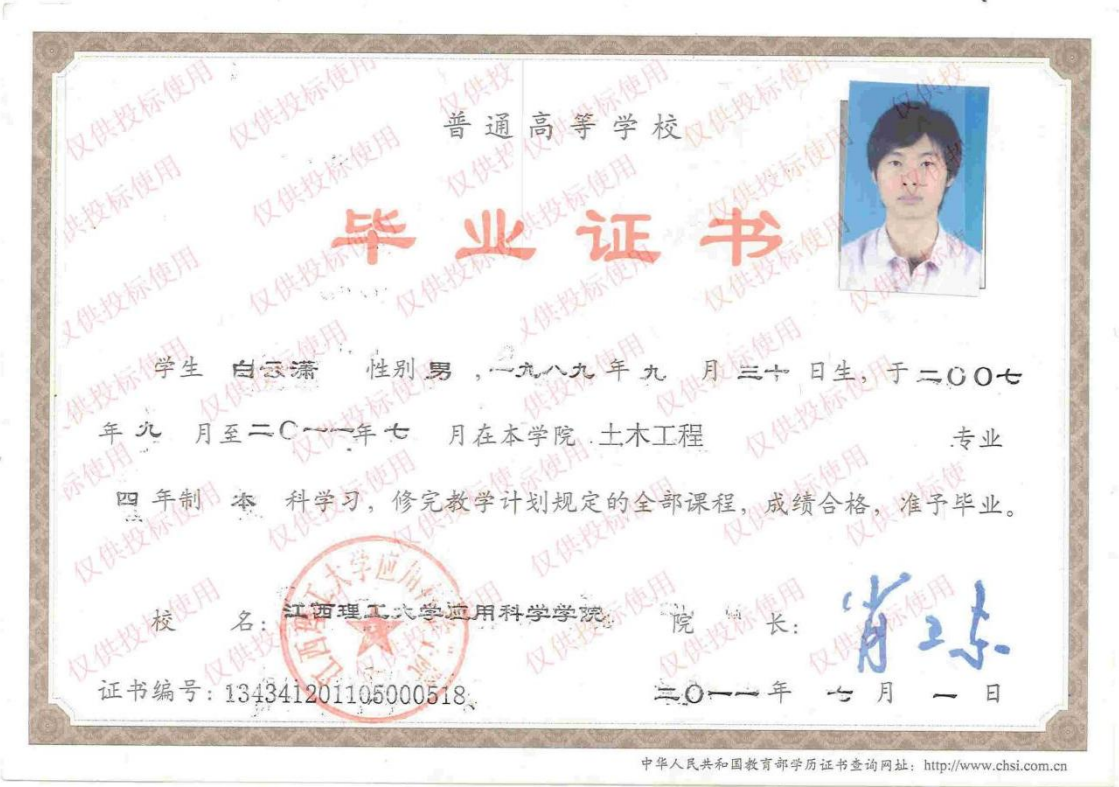 普通高等学校
毕业证书
学生 白云潇 性别 男 ,一九八九年 九 月 三十 日生, 于二〇〇七
年 九 月至二〇一一年 七 月在本学院 土木工程 专业
四 年制 本 科学习, 修完教学计划规定的全部课程, 成绩合格, 准予毕业。
校 名: 江西理工大学应用科学学院 院 长:
证书编号: 134341201105000518 二〇一一年 七 月 一 日
中华人民共和国教育部学历证书查询网址: http://www.chsi.com.cn
仅供投标使用
江西理工大学应用科学学院